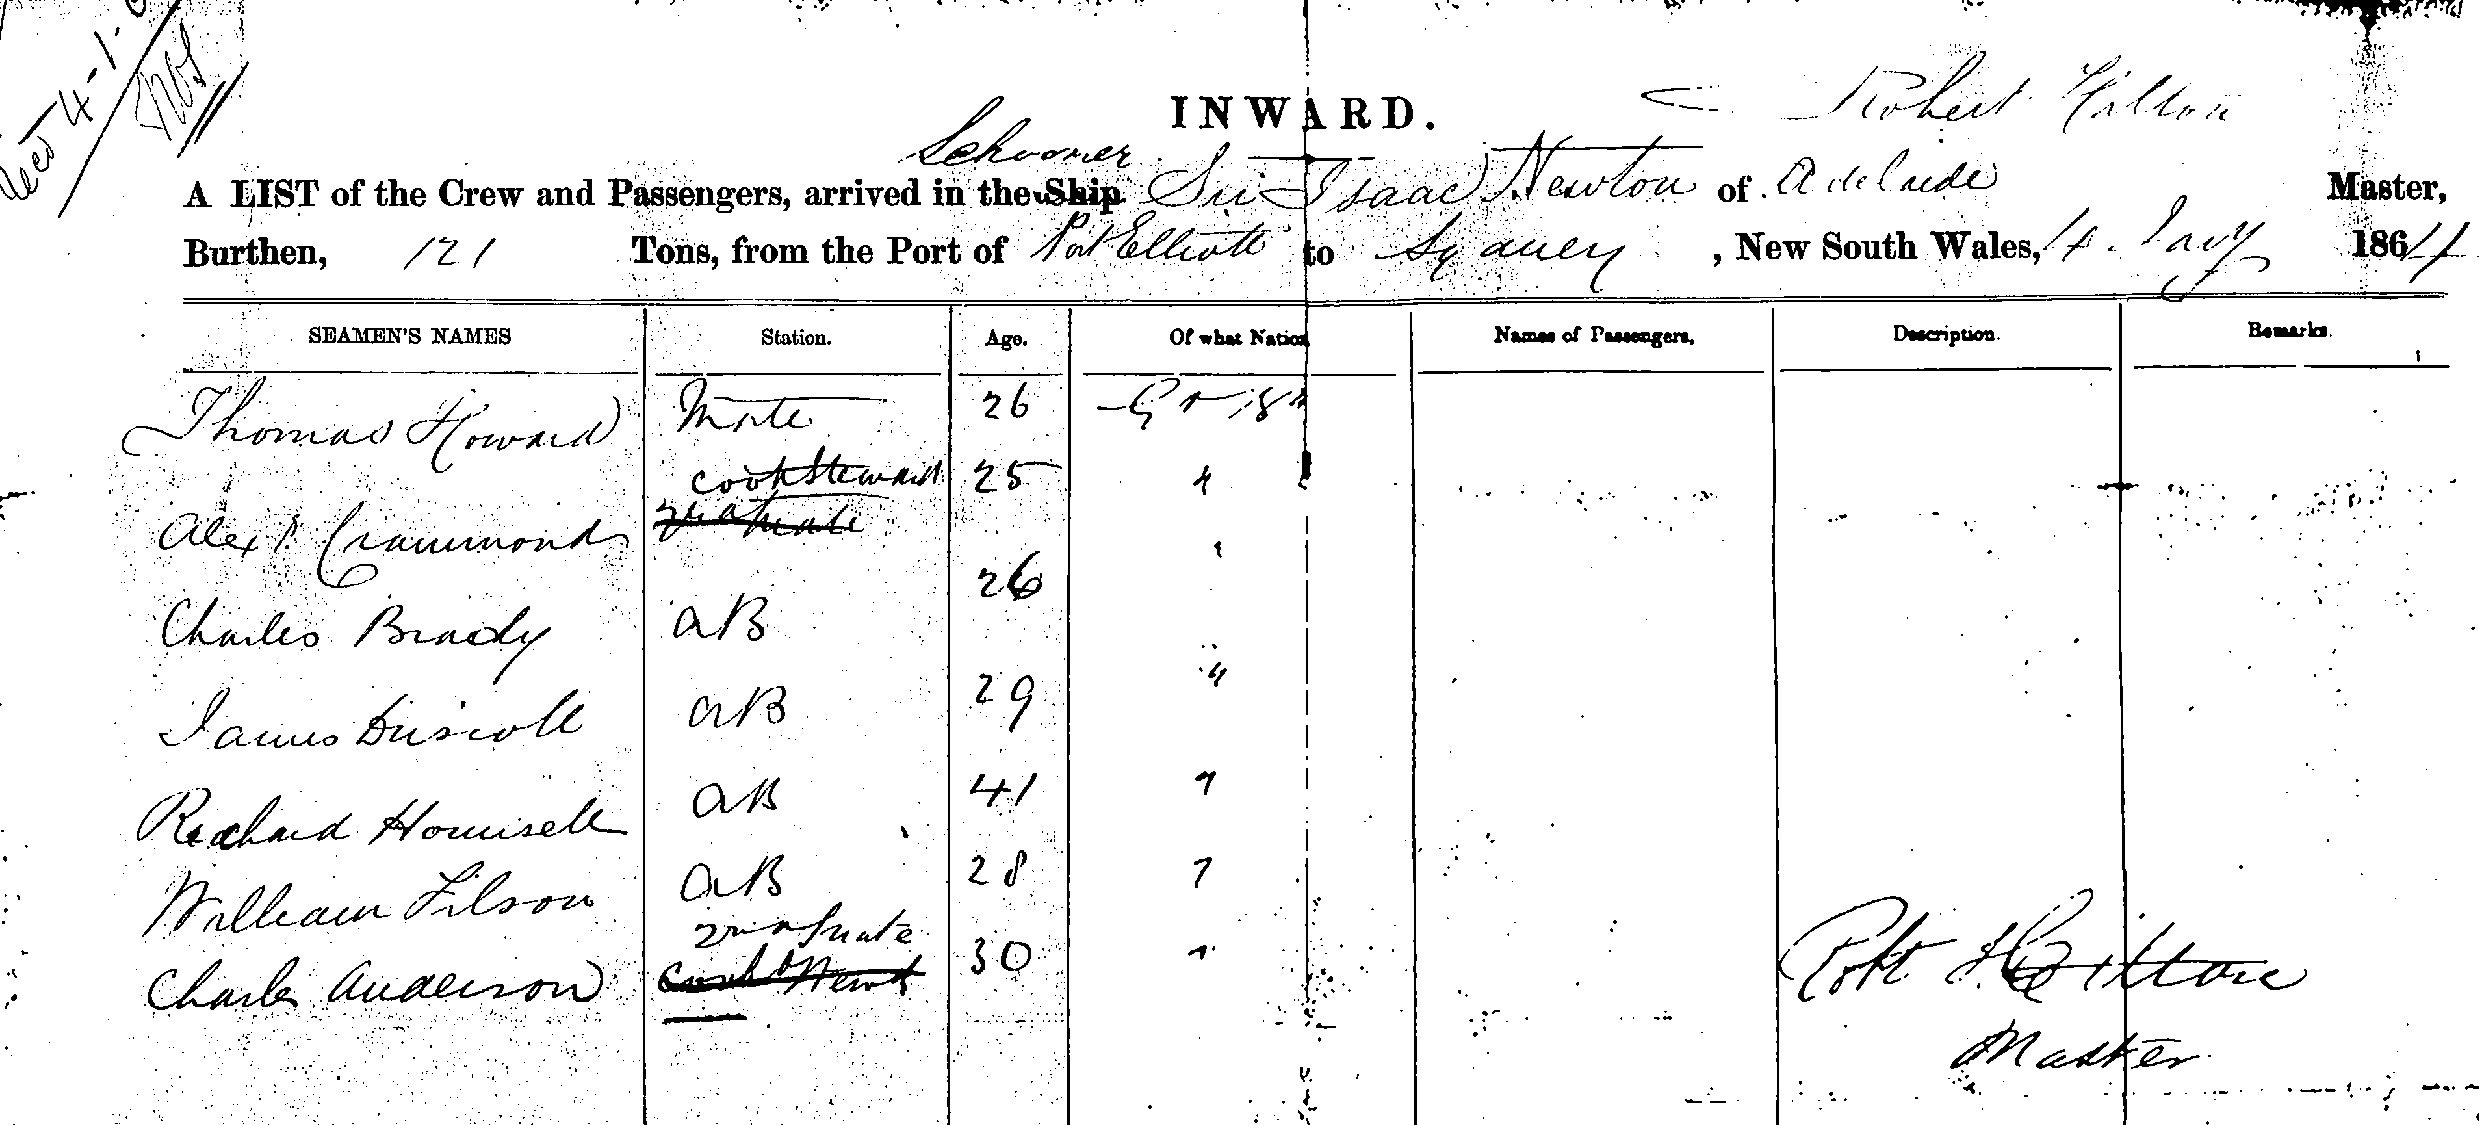 Recd 4-1-
INWARD.
Robert Hilton
Schooner
A LIST of the Crew and Passengers, arrived in the Ship Sir Isaac Newton of Adelaide Master,
Burthen, 121 Tons, from the Port of Port Elliott to Sydney, New South Wales, 4 Jany 1864
SEAMEN'S NAMES Station. Age. Of what Nation Names of Passengers, Description. Remarks.
Thomas Howard Mate 26 Gt Bn
Cook Steward 25 "
Alexr Crammond 2nd Mate
Charles Brady AB 26 "
James Driscoll AB 29 "
Richard AB 41 "
William Filson AB 28 "
2nd Mate
Charles Anderson Cook & Stewd 30 "
Robt Hilton
Master